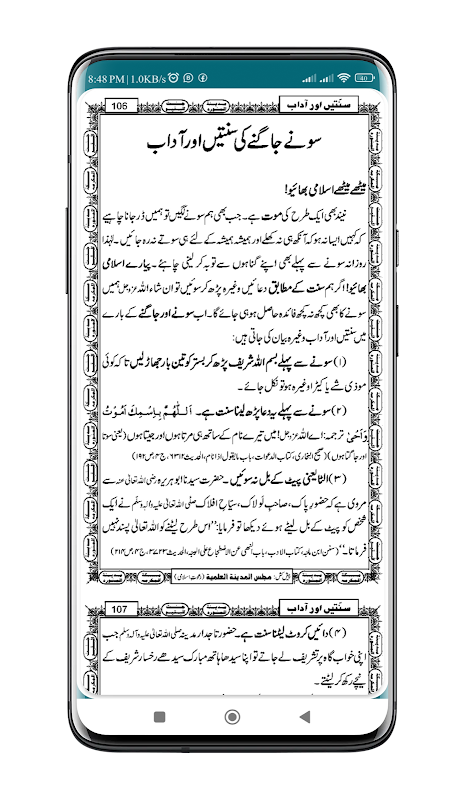 8:48 PM | 1.0KB/s
40
106
سنتیں اور آداب
سونے جاگنے کی سنتیں اور آداب
میٹھے میٹھے اسلامی بھائیو!
نیند بھی ایک طرح کی موت ہے۔ جب بھی ہم سونے لگیں تو ہمیں ڈر جانا چاہیے
کہ کہیں ایسا نہ ہو کہ آنکھ ہی نہ کھلے اور ہمیشہ ہمیشہ کے لئے ہی سوتے نہ رہ جائیں۔ لہٰذا
روزانہ سونے سے پہلے بھی اپنے گناہوں سے توبہ کر لینی چاہئے۔ پیارے اسلامی
بھائیو! اگر ہم سنت کے مطابق دعائیں وغیرہ پڑھ کر سوئیں تو ان شاء اللہ عزوجل ہمیں
سونے کا بھی کچھ نہ کچھ فائدہ حاصل ہو ہی جائے گا۔ اب سونے اور جاگنے کے بارے
میں سنتیں اور آداب وغیرہ بیان کی جاتی ہیں:
(۱) سونے سے پہلے بسم اللہ شریف پڑھ کر بستر کو تین بار جھاڑ لیں تاکہ کوئی
موذی شے یا کیڑا وغیرہ ہو تو نکل جائے۔
(۲) سونے سے پہلے یہ دعا پڑھ لینا سنت ہے۔ اَللّٰهُمَّ بِاِسْمِكَ اَمُوْتُ
وَاَحْیٰ ترجمہ: اے اللہ عزوجل! میں تیرے نام کے ساتھ ہی مرتا ہوں اور جیتا ہوں (یعنی سوتا
اور جاگتا ہوں) (صحیح البخاری، کتاب الدعوات، باب مایقول اذا نام، الحدیث ۶۳۱۲، ج۴، ص۱۹۲)
(۳) الٹا یعنی پیٹ کے بل نہ سوئیں۔ حضرت سیدنا ابوہریرہ رضی اللہ تعالیٰ عنہ سے
مروی ہے کہ حضور پاک، صاحب لولاک، سیاح افلاک صلی اللہ تعالیٰ علیہ واٰلہ وسلم نے ایک
شخص کو پیٹ کے بل لیٹے ہوئے دیکھا تو فرمایا: ''اس طرح لیٹنے کو اللہ تعالیٰ پسند نہیں
فرماتا۔'' (سنن ابن ماجہ، کتاب الادب، باب النھی عن الاضطجاع علی الوجہ، الحدیث ۳۷۲۳، ج۴، ص۲۱۴)
پیش کش: مجلس المدینة العلمیة (دعوت اسلامی)
107
سنتیں اور آداب
(۴) دائیں کروٹ لیٹنا سنت ہے۔ حضور تاجدار مدینہ صلی اللہ تعالیٰ علیہ واٰلہ وسلم جب
اپنی خواب گاہ پر تشریف لے جاتے تو اپنا سیدھا ہاتھ مبارک سیدھے رخسار شریف کے
نیچے رکھ کر لیٹتے۔